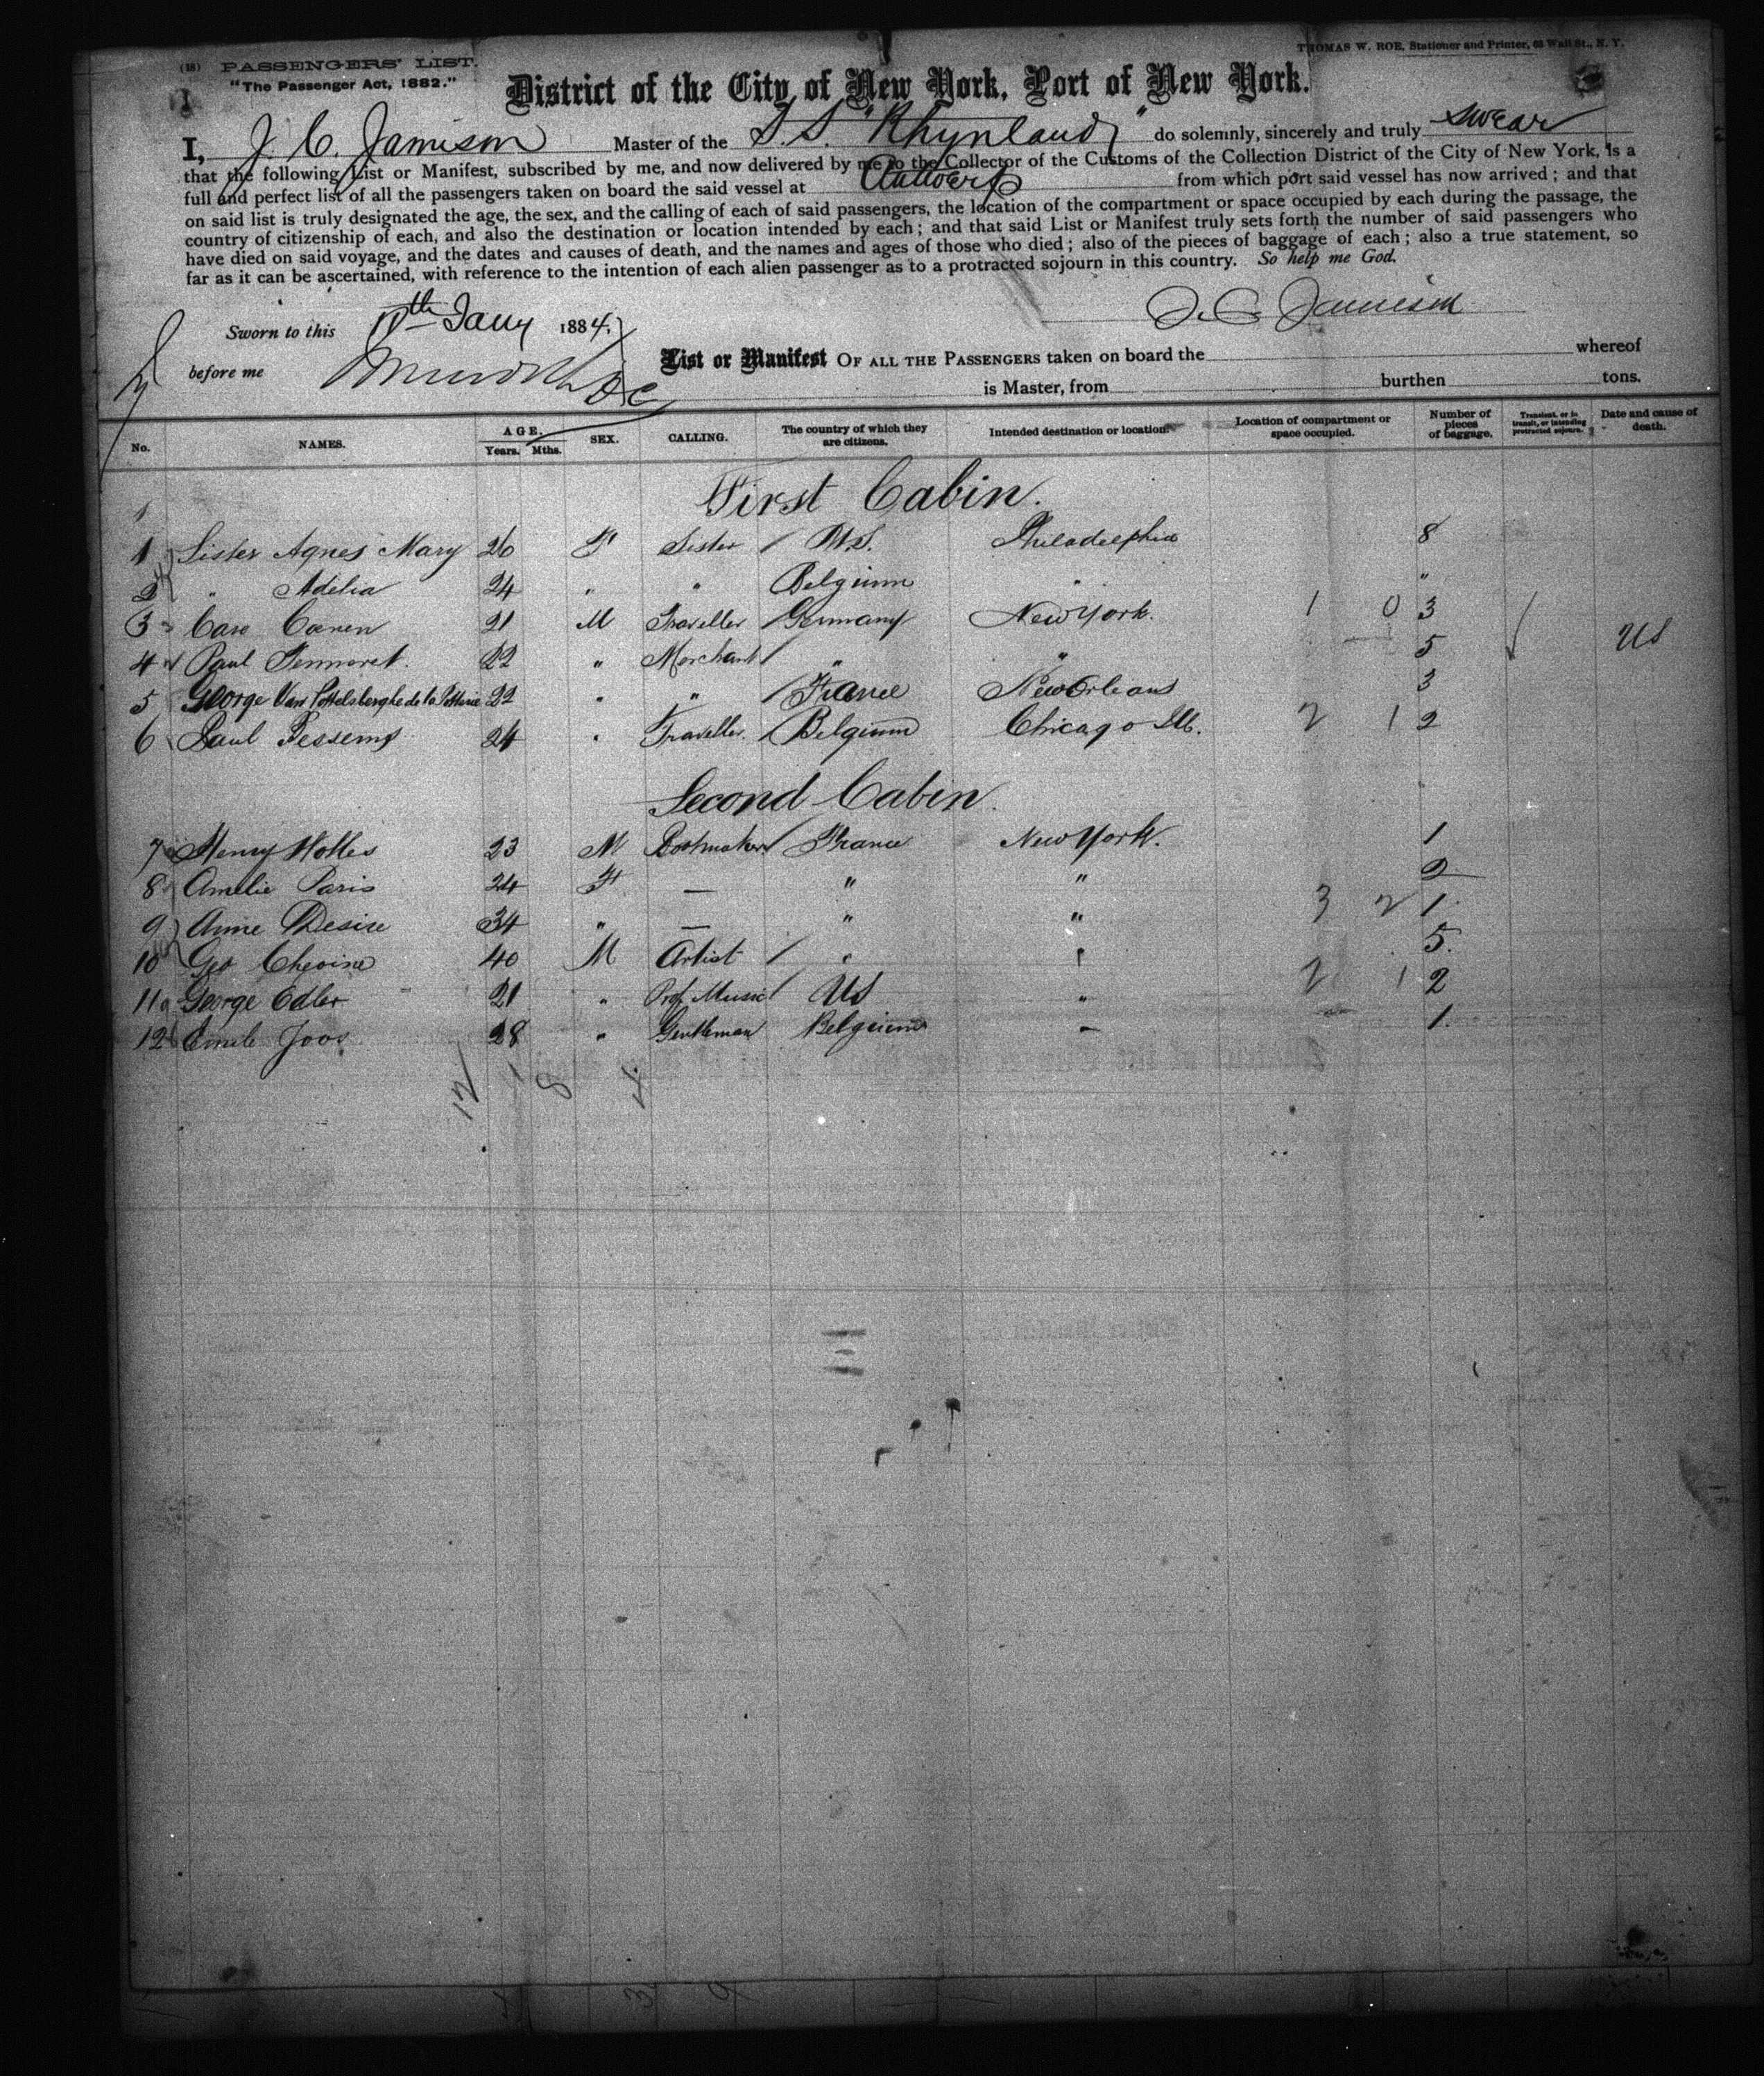 (18) PASSENGERS' LIST.
THOMAS W. ROE, Stationer and Printer, 63 Wall St., N. Y.
"The Passenger Act, 1882."
District of the City of New York, Port of New York.
I, J. C. Jamison Master of the S.S. "Rhynland" do solemnly, sincerely and truly swear
that the following List or Manifest, subscribed by me, and now delivered by me to the Collector of the Customs of the Collection District of the City of New York, is a
full and perfect list of all the passengers taken on board the said vessel at Antwerp from which port said vessel has now arrived; and that
on said list is truly designated the age, the sex, and the calling of each of said passengers, the location of the compartment or space occupied by each during the passage, the
country of citizenship of each, and also the destination or location intended by each; and that said List or Manifest truly sets forth the number of said passengers who
have died on said voyage, and the dates and causes of death, and the names and ages of those who died; also of the pieces of baggage of each; also a true statement, so
far as it can be ascertained, with reference to the intention of each alien passenger as to a protracted sojourn in this country. So help me God.
J. C. Jamison
Sworn to this Jany 1884,
before me
List or Manifest OF ALL THE PASSENGERS taken on board the whereof
is Master, from burthen tons.
No. NAMES. AGE. Years. Mths. SEX. CALLING. The country of which they are citizens. Intended destination or location. Location of compartment or space occupied. Number of pieces of baggage. Transient, or in transit, or intending protracted sojourn. Date and cause of death.
First Cabin.
1 Sister Agnes Mary 26 F Sister / U.S. Philadelphia 8
2 " Adelia 24 " " Belgium " "
3 Caro Canen 21 M Traveller / Germany New York. 1 0 3
4 Paul 22 " Merchant / " " 5 US
5 George Van de la 22 " " / France New Orleans 3
6 Paul 24 " Traveller / Belgium Chicago Ill. 2 1 2
Second Cabin.
7 Henry 23 M Bootmaker / France New York. 1
8 Amelie Paris 24 F — " " 2
9 Aime Desire 34 " — " " 3 2 1.
10 Geo 40 M Artist / " " 5.
11 George Edler 21 " Prof. Music / US " 2 1 2
12 Emile Joos 28 " Gentleman Belgium " 1.
12 8 4